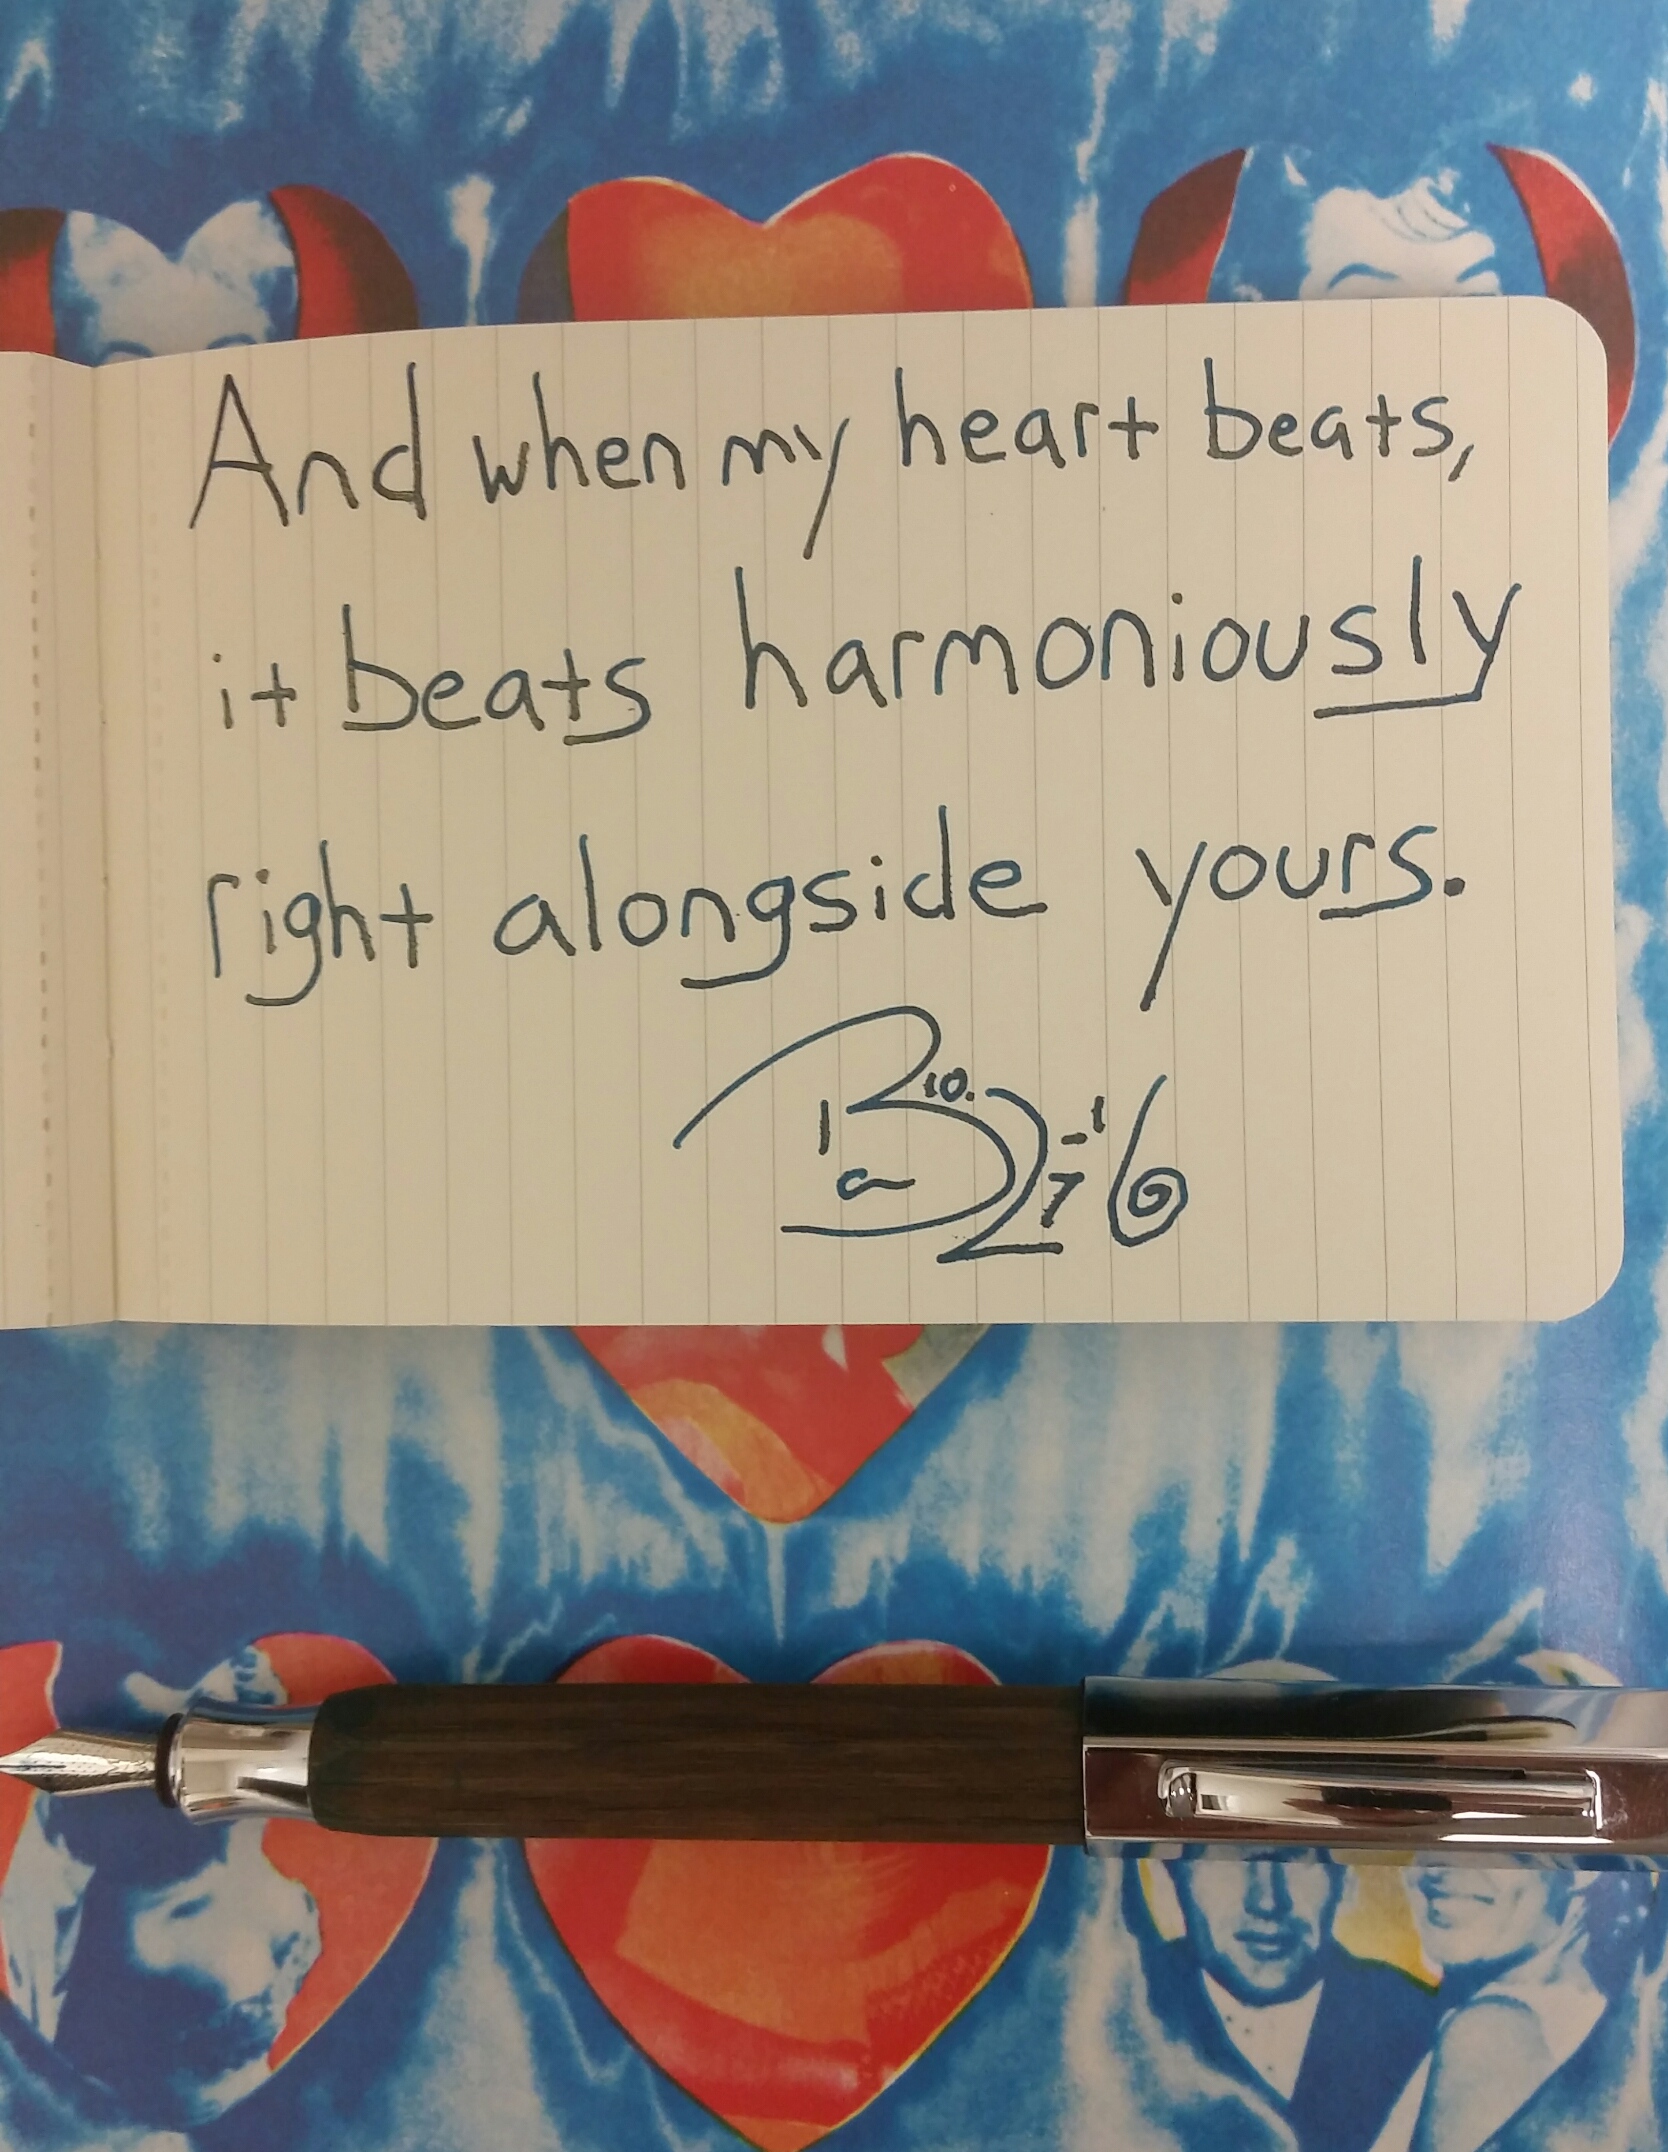 And when my heart beats,
it beats harmoniously
right alongside yours.